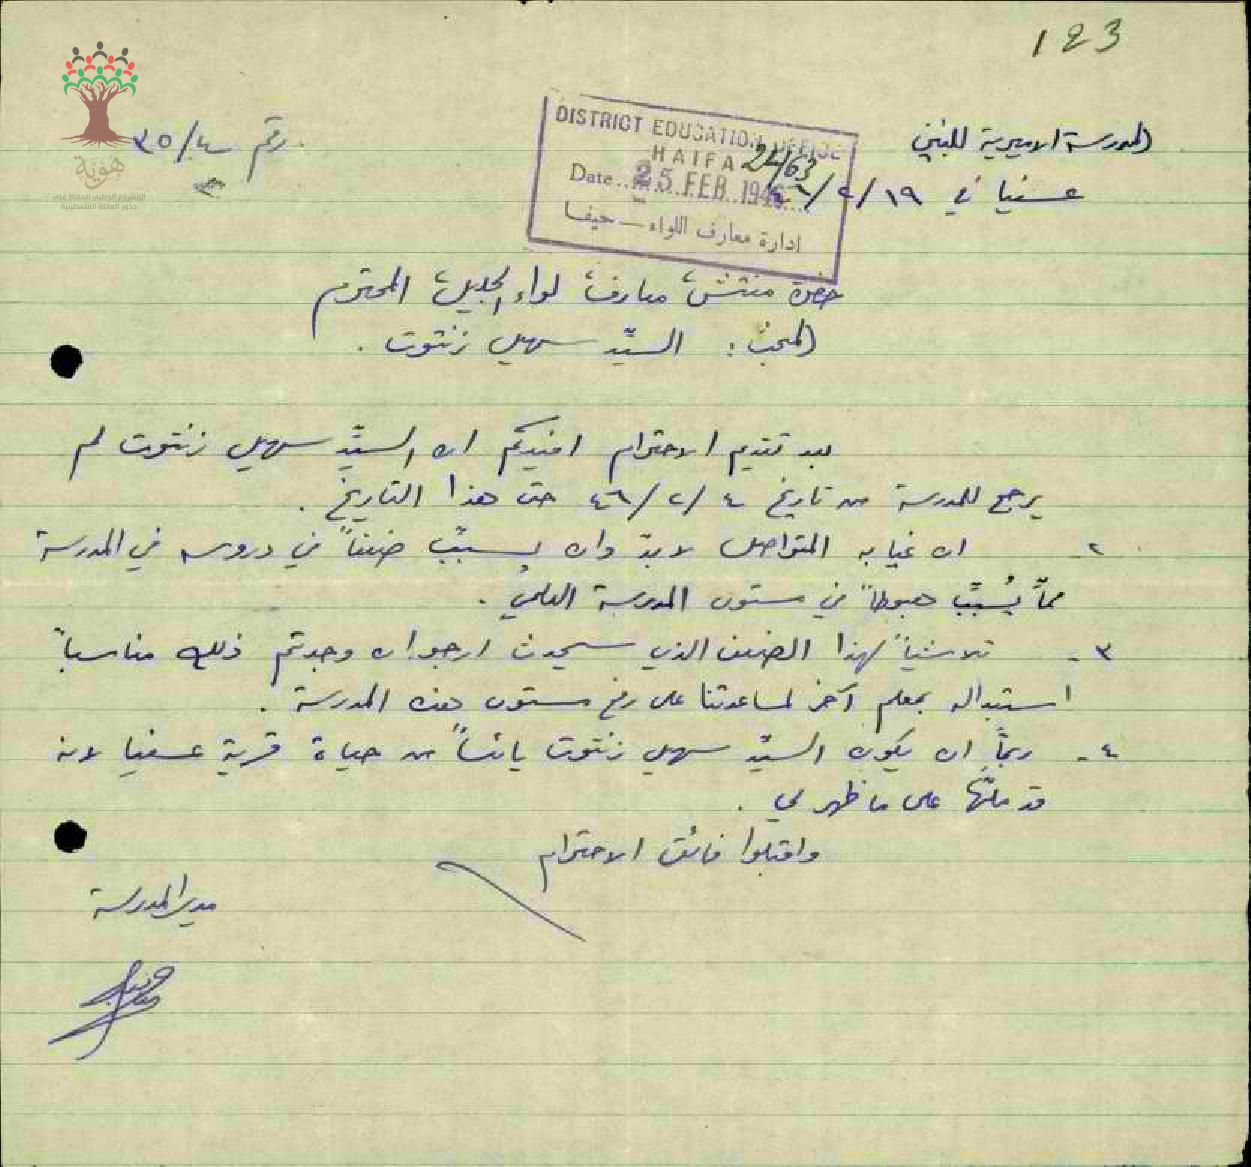 123
المدرسة الاميرية للبنين
عسفيا في ١٩/٢/
رقم ٣٥/٤
DISTRICT EDUCATION OFFICE
HAIFA 24/63
Date 25 FEB 1946
ادارة معارف اللواء — حيفا
هوية
المشروع الوطني للحفاظ على
جذور العائلة الفلسطينية
حضرة مفتش معارف لواء الجليل المحترم
المبحث : السيّد سهيل زنتوت .
بعد تقديم الاحترام افيدكم ان السيّد سهيل زنتوت لم
يرجع للمدرسة من تاريخ ٤/٢/٤٦ حتى هذا التاريخ .
٢- ان غيابه المتواصل لا بدّ وان يسبّب ضعفاً في دروسه في المدرسة
ممّا يُسبّب هبوطاً في مستوى المدرسة العلمي .
٣- تلاشياً لهذا الضعف الذي سيحدث ارجو ان وجدتم ذلك مناسباً
استبداله بمعلم آخر لمساعدتنا على رفع مستوى هذه المدرسة .
٤- ربّما ان يكون السيّد سهيل زنتوت يائساً من حياة قرية عسفيا لانه
قد ملّها على ما ظهر لي .
واقبلوا فائق الاحترام
مدير المدرسة